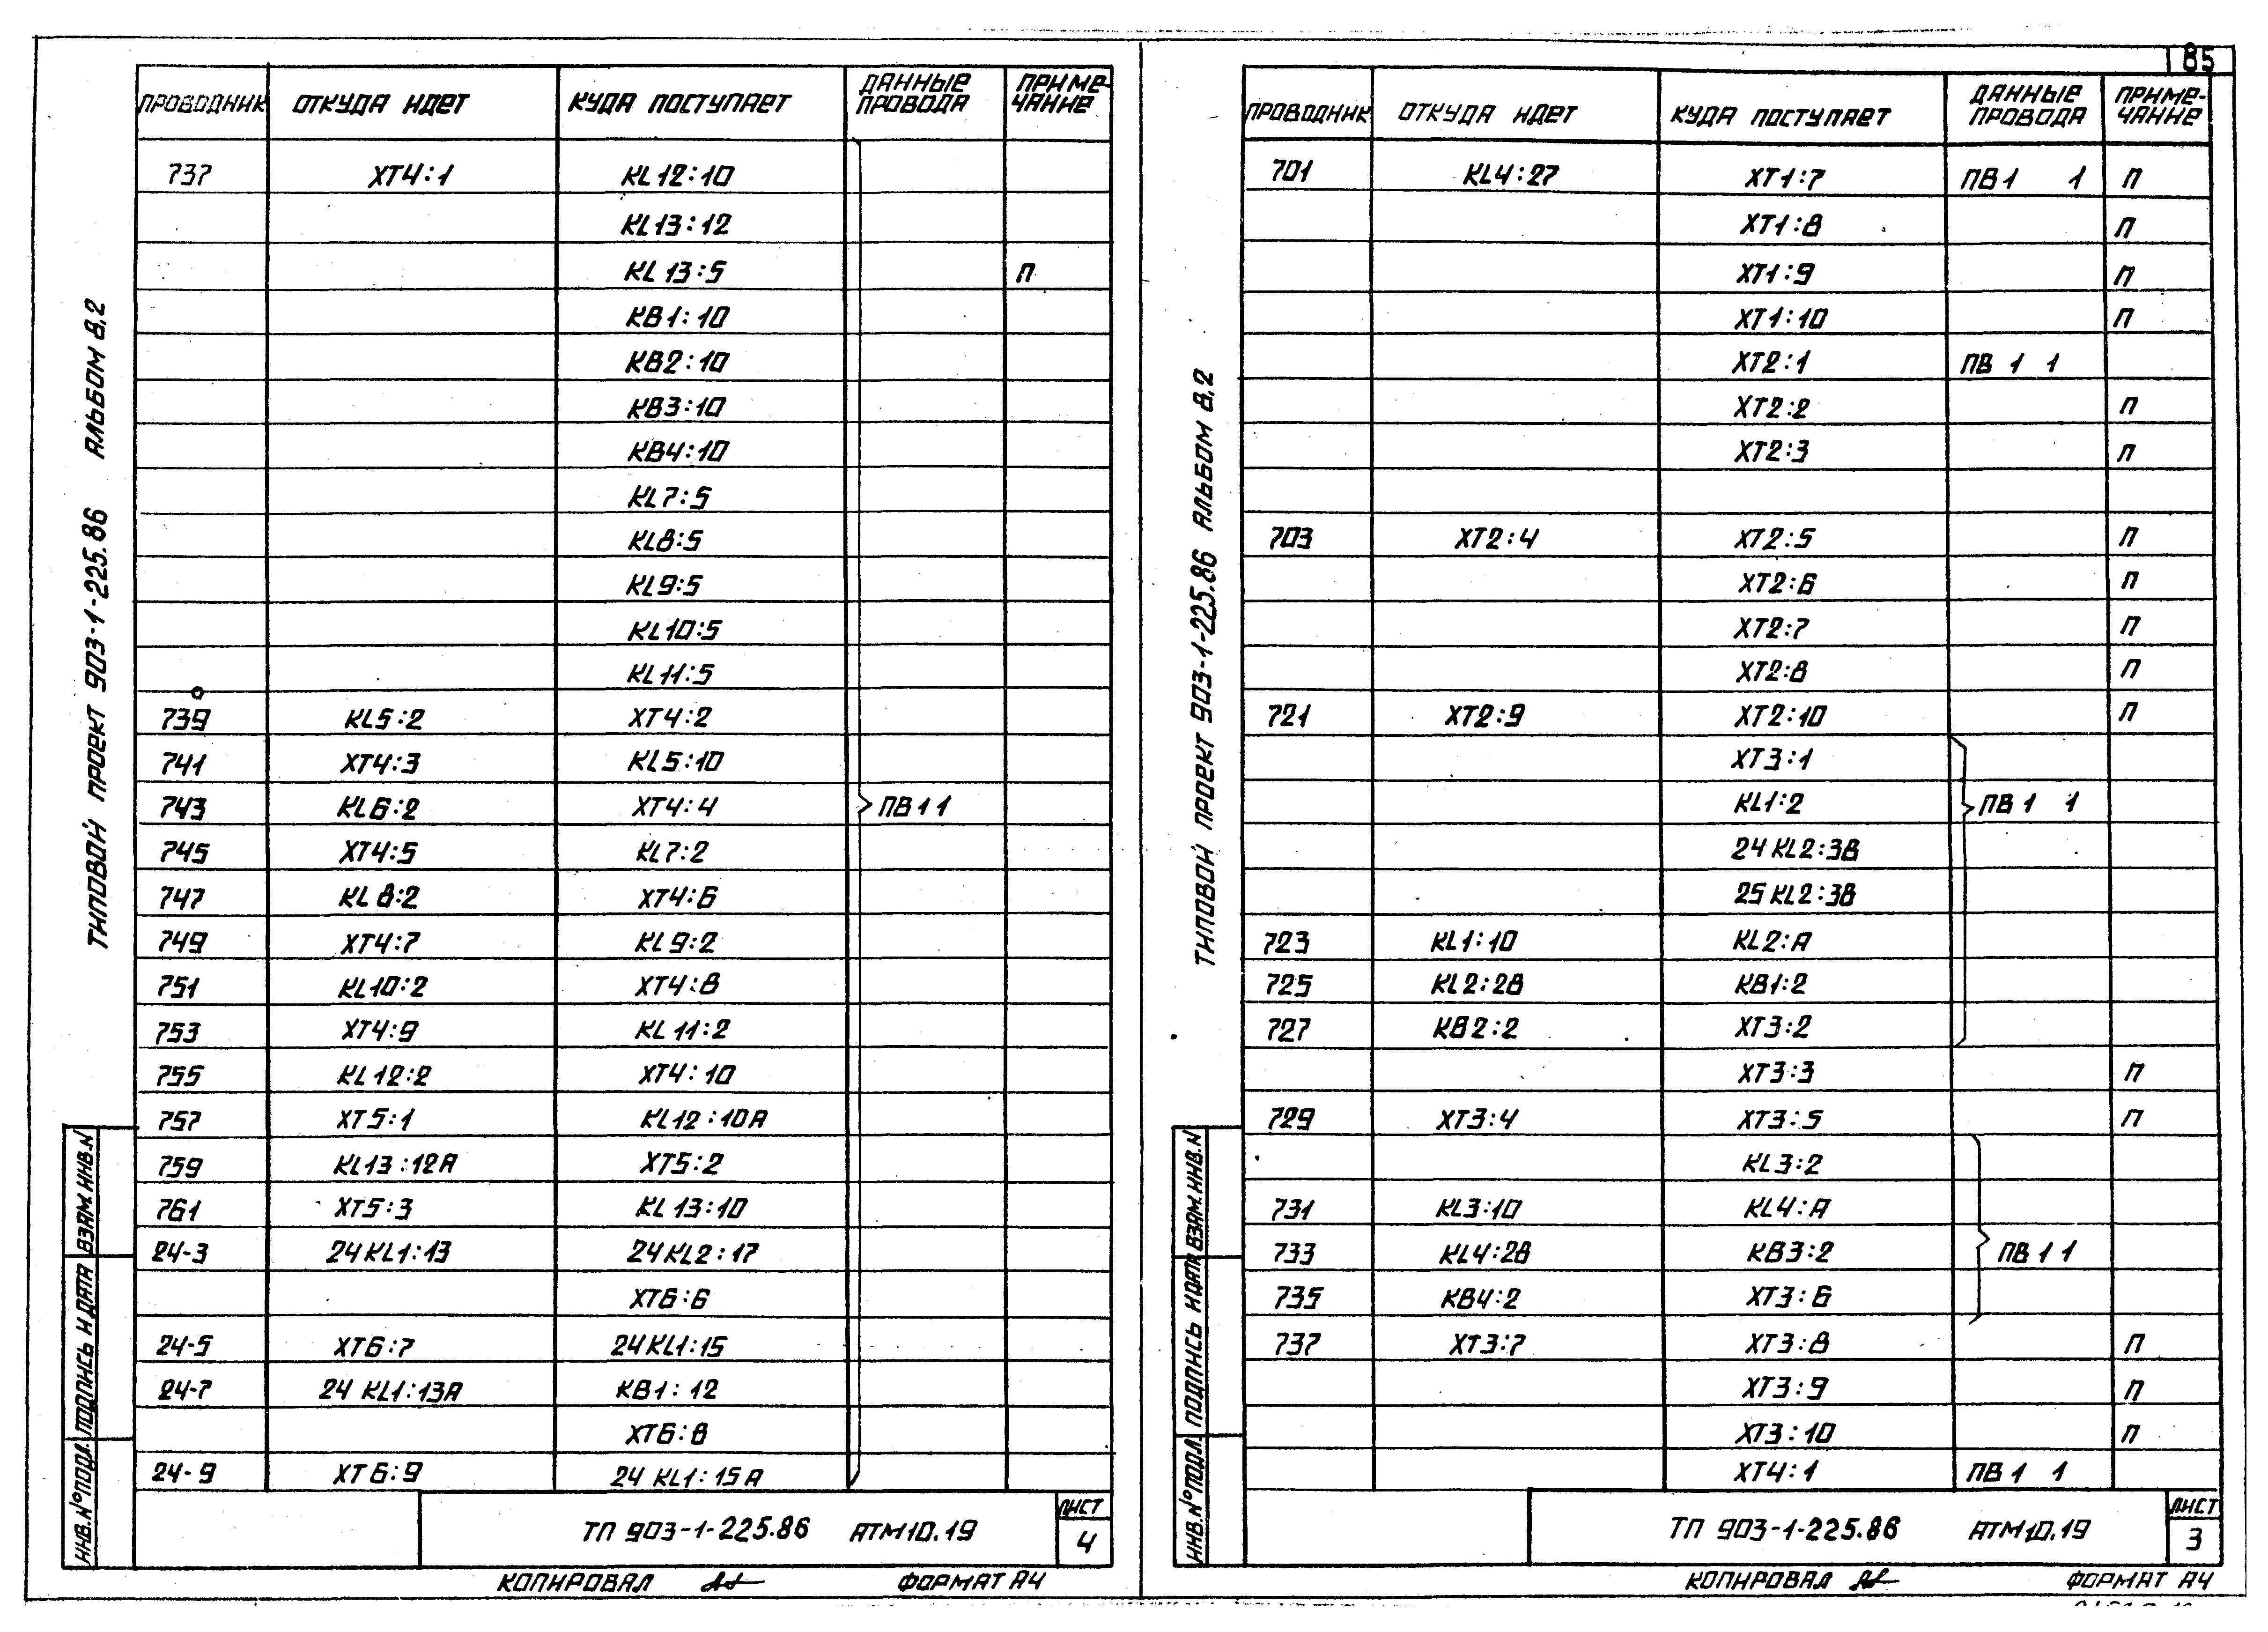 ПРОВОДНИК ОТКУДА ИДЕТ КУДА ПОСТУПАЕТ ДАННЫЕ ПРОВОДА ПРИМЕ-ЧАНИЕ
737 XT4:1 KL12:10
KL13:12
KL13:5 П
KB1:10
KB2:10
KB3:10
KB4:10
KL7:5
KL8:5
KL9:5
KL10:5
KL11:5
739 KL5:2 XT4:2
741 XT4:3 KL5:10
743 KL6:2 XT4:4 ПВ1 1
745 XT4:5 KL7:2
747 KL8:2 XT4:6
749 XT4:7 KL9:2
751 KL10:2 XT4:8
753 XT4:9 KL11:2
755 KL12:2 XT4:10
757 XT5:1 KL12:10A
759 KL13:12A XT5:2
761 XT5:3 KL13:10
24-3 24KL1:13 24KL2:17
XT6:6
24-5 XT6:7 24KL1:15
24-7 24 KL1:13A KB1:12
XT6:8
24-9 XT6:9 24 KL1:15A
ТП 903-1-225.86 АТМ10.19
ЛИСТ
4
КОПИРОВАЛ ФОРМАТ А4
ТИПОВОЙ ПРОЕКТ 903-1-225.86 АЛЬБОМ 8.2
ВЗАМ.ИНВ.N
ПОДПИСЬ И ДАТА
ИНВ.N°ПОДЛ.
85
ПРОВОДНИК ОТКУДА ИДЕТ КУДА ПОСТУПАЕТ ДАННЫЕ ПРОВОДА ПРИМЕ-ЧАНИЕ
701 KL4:27 XT1:7 ПВ1 1 П
XT1:8 П
XT1:9 П
XT1:10 П
XT2:1 ПВ 1 1
XT2:2 П
XT2:3 П
703 XT2:4 XT2:5 П
XT2:6 П
XT2:7 П
XT2:8 П
721 XT2:9 XT2:10 П
XT3:1
KL1:2 ПВ1 1
24KL2:3B
25KL2:3B
723 KL1:10 KL2:A
725 KL2:2B KB1:2
727 KB2:2 XT3:2
XT3:3 П
729 XT3:4 XT3:5 П
KL3:2
731 KL3:10 KL4:A
733 KL4:2B KB3:2 ПВ1 1
735 KB4:2 XT3:6
737 XT3:7 XT3:8 П
XT3:9 П
XT3:10 П
XT4:1 ПВ1 1
ТП 903-1-225.86 АТМ10.19
ЛИСТ
3
КОПИРОВАЛ ФОРМАТ А4
ТИПОВОЙ ПРОЕКТ 903-1-225.86 АЛЬБОМ 8.2
ВЗАМ.ИНВ.N
ПОДПИСЬ И ДАТА
ИНВ.N°ПОДЛ.